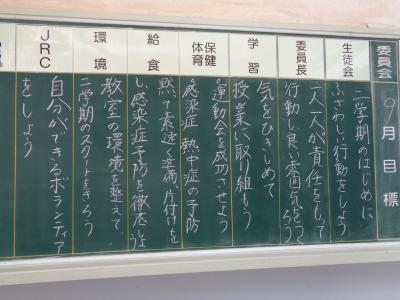 委員会
9月目標
生徒会
二学期のはじめに
ふさわしい行動をしよう
委員長
一人一人が責任をもって
行動し良い雰囲気をつくろう
学習
気をひきしめて
授業に取り組もう
保健体育
運動会を成功させよう
感染症、熱中症の予防
給食
黙って素速く準備、片付けを
し、感染症予防を徹底しよう
環境
教室の環境を整えて
二学期のスタートをきろう
JRC
自分ができるボランティア
をしよう